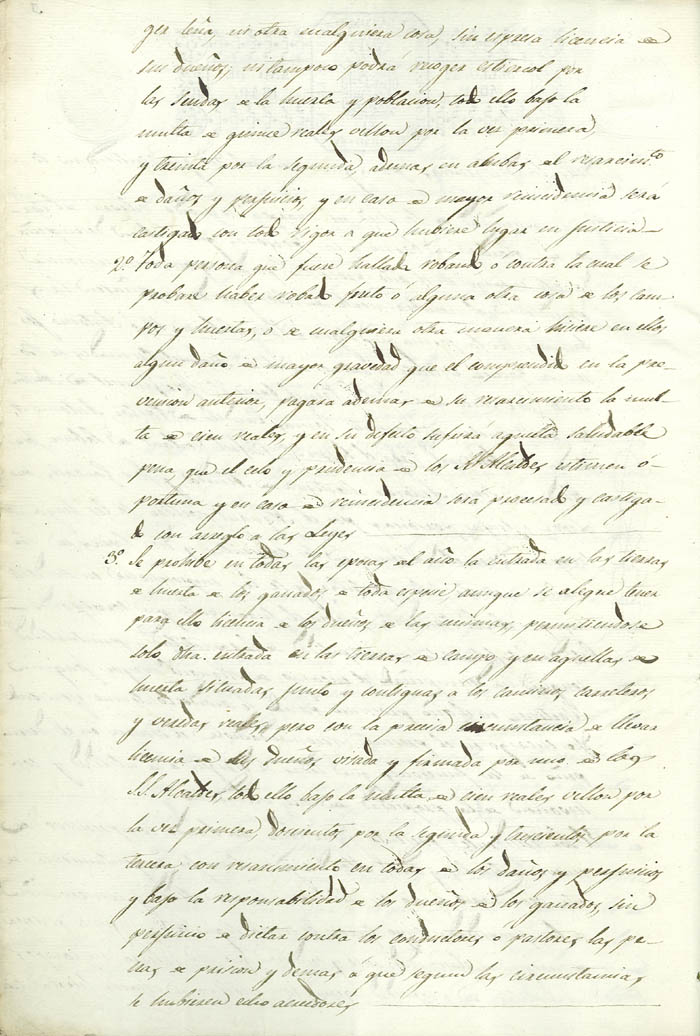 ger leña, ni otra cualquiera cosa, sin espresa licencia de
sus dueños; ni tampoco podra recoger estiercol por
las sendas de la huerta y poblacion, todo ello bajo la
multa de quince reales vellon por la vez primera,
y treinta por la segunda, ademas en ambas el resarcimto
de daños y perjuicios, y en caso de mayor reincidencia será
castigado con todo rigor a que hubiere lugar en justicia
2º Toda persona que fuere hallada robando ó contra la cual se
probare haber robado fruto ó alguna otra cosa de los cam-
pos y huertas, o de cualquiera otra manera hiciere en ellos
algun daño de mayor gravedad que el comprendido en la pre-
vencion anterior, pagara ademas de su resarcimiento la mul-
ta de cien reales, y en su defecto sufrirá aquella saludable
pena que el celo y prudencia de los SS. Alcaldes estimen ó-
portuna y en caso de reincidencia sera procesado y castiga-
do con arreglo a las Leyes
3º Se prohibe en todas las epocas del año la entrada en las tierras
de huerta de los ganados de toda especie aunque se alegue tener
para ello licencia de los dueños de las mismas, permitiendose
solo dha. entrada en las tierras de campo y en aquellas de
huerta situadas junto y contiguas a los caminos carreteros
y veredas reales, pero con la precisa circunstancia de llevar
licencia de sus dueños visada y firmada por uno de los
S.S. Alcaldes, todo ello bajo la multa de cien reales vellon por
la vez primera, doscientos por la segunda y trescientos por la
tercera con resarcimiento en todas de los daños y perjuicios
y bajo la responsabilidad de los dueños de los ganados, sin
perjuicio de dictar contra los conductores o pastores las pe-
nas de prision y demas á que segun las circunstancias
se hubieren echo acreedores